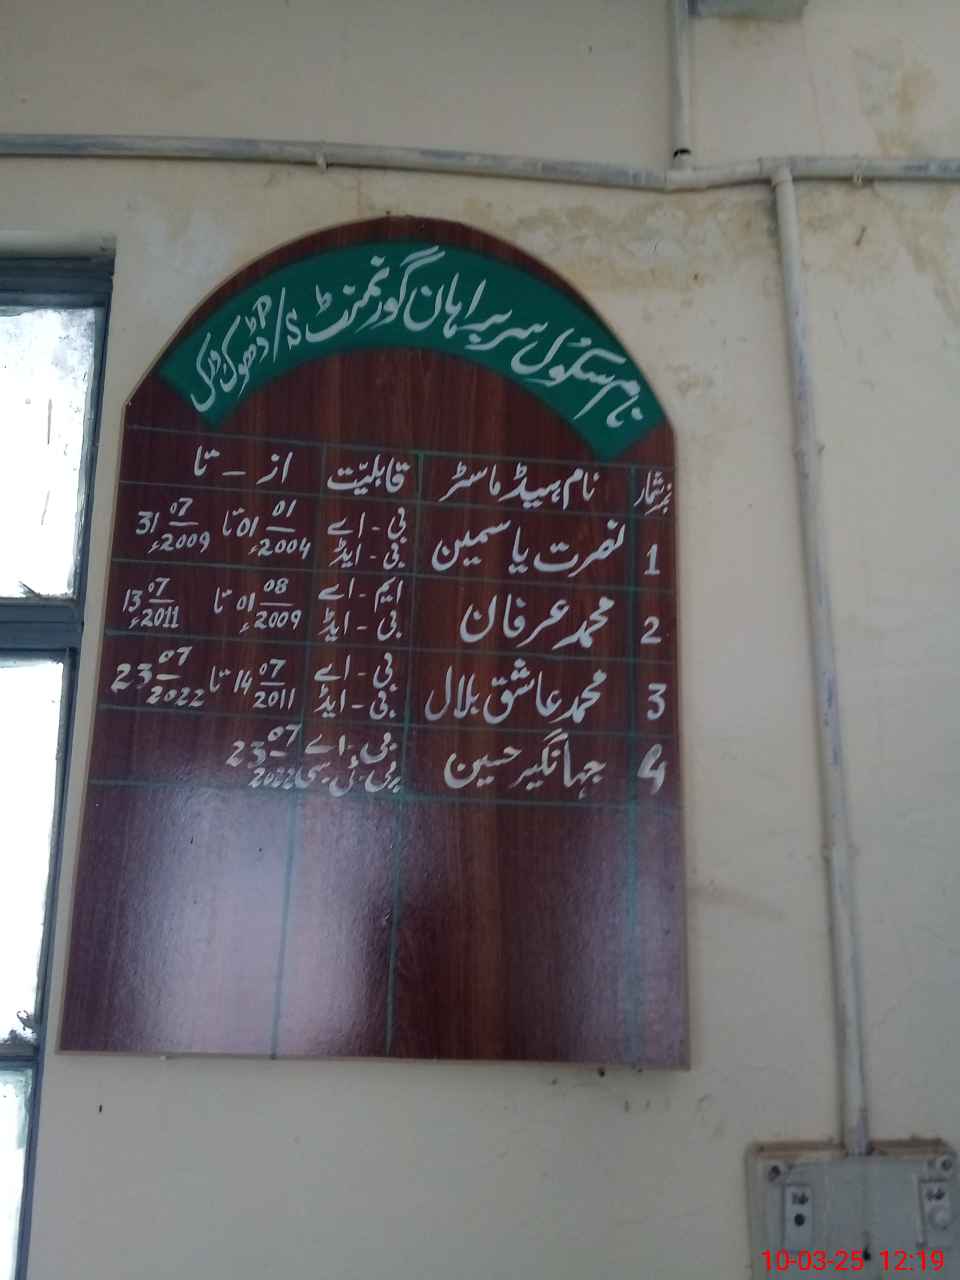 نام سکول سربراہان گورنمنٹ P/S ڈھوک
نمبرشمار نام ہیڈ ماسٹر قابلیّت از - تا
1 نصرت یاسمین بی - اے بی - ایڈ 01 01 2004ء تا 31 07 2009ء
2 محمد عرفان ایم - اے بی - ایڈ 01 08 2009ء تا 13 07 2011ء
3 محمد عاشق بلال بی - اے بی - ایڈ 14 07 2011 تا 23 07 2022
4 جہانگیر حسین بی - اے پی ٹی سی 23 07 2022
10-03-25 12:19